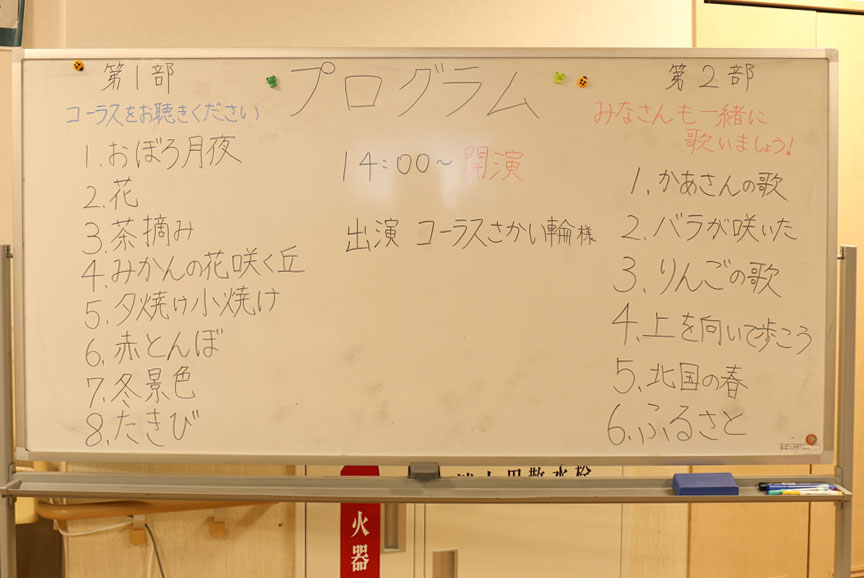 プログラム
第1部
コーラスをお聴きください
1.おぼろ月夜
2.花
3.茶摘み
4.みかんの花咲く丘
5.夕焼け小焼け
6.赤とんぼ
7.冬景色
8.たきび
14:00～開演
出演 コーラスさかい輪様
第2部
みなさんも一緒に
歌いましょう!
1.かあさんの歌
2.バラが咲いた
3.りんごの歌
4.上を向いて歩こう
5.北国の春
6.ふるさと
火器